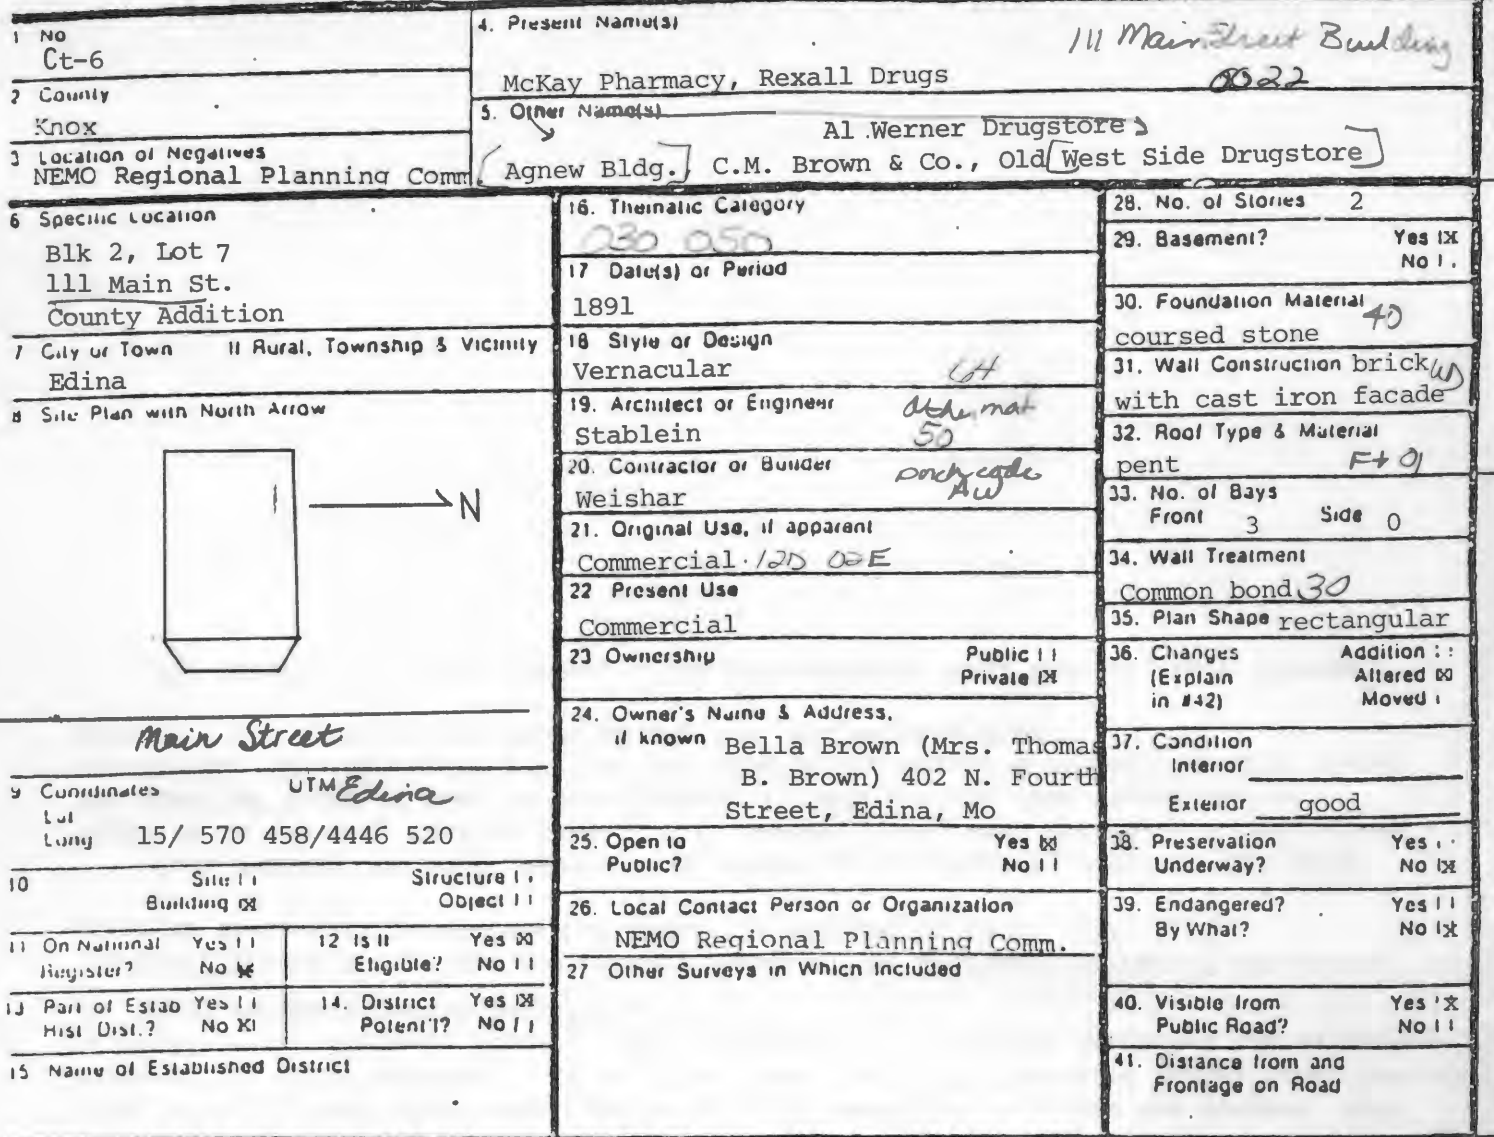 1 No
Ct-6
2 County
Knox
3 Location of Negatives
NEMO Regional Planning Comm
4. Present Name(s)
111 Main Street Building
McKay Pharmacy, Rexall Drugs
0022
5. Other Name(s)
Al Werner Drugstore
Agnew Bldg. C.M. Brown & Co., Old West Side Drugstore
6 Specific Location
Blk 2, Lot 7
111 Main St.
County Addition
7 City or Town If Rural, Township & Vicinity
Edina
8 Site Plan with North Arrow
N
Main Street
9 Coordinates UTM Edina
Lat
Long 15/ 570 458/4446 520
10 Site | | Structure | |
Building [X] Object | |
11 On National Yes | |
Register? No [X]
12 Is It Yes [X]
Eligible? No | |
13 Part of Estab Yes | |
Hist Dist.? No [X]
14. District Yes [X]
Potent'l? No | |
15 Name of Established District
16. Thematic Category
030 050
17 Date(s) or Period
1891
18 Style or Design
Vernacular 64
19. Architect or Engineer
Stablein 50
20. Contractor or Builder
Weishar
21. Original Use, if apparent
Commercial 12D 02E
22 Present Use
Commercial
23 Ownership Public | |
Private [X]
24. Owner's Name & Address,
if known Bella Brown (Mrs. Thomas
B. Brown) 402 N. Fourth
Street, Edina, Mo
25. Open to Yes [X]
Public? No | |
26. Local Contact Person or Organization
NEMO Regional Planning Comm.
27 Other Surveys in Which Included
28. No. of Stories 2
29. Basement? Yes [X]
No | |
30. Foundation Material 40
coursed stone
31. Wall Construction brick
with cast iron facade
32. Roof Type & Material
pent
33. No. of Bays
Front 3 Side 0
34. Wall Treatment
Common bond 30
35. Plan Shape rectangular
36. Changes Addition | |
(Explain Altered [X]
in #42) Moved | |
37. Condition
Interior
Exterior good
38. Preservation Yes | |
Underway? No [X]
39. Endangered? Yes | |
By What? No [X]
40. Visible from Yes [X]
Public Road? No | |
41. Distance from and
Frontage on Road